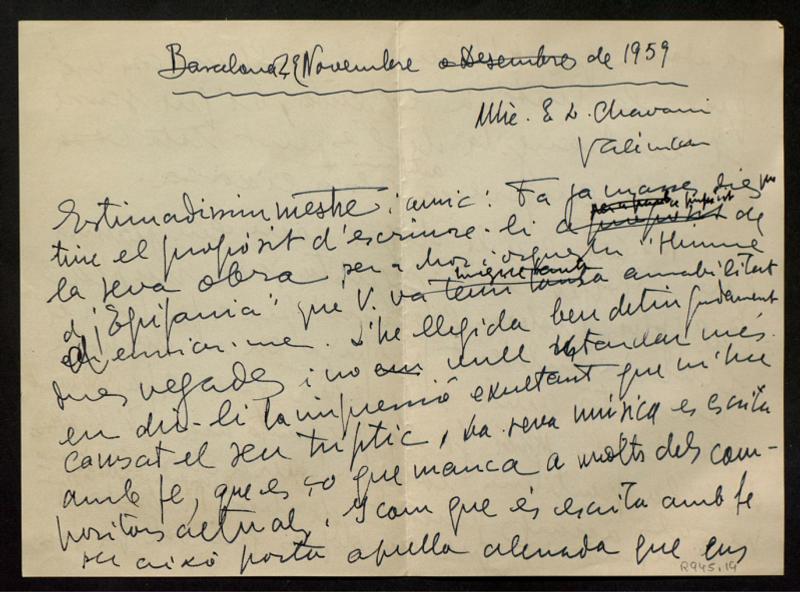 Barcelona 29 Novembre o Desembre de 1959
Mtre. E L. Chavarri
València
Estimadissim mestre i amic: Fa ja masses dies que
tinc el propòsit d'escriure-li a propòsit de
la seva obra per a chor i orquestra "Himne
d'Epifania" que V. va tenir tanta amabilitat
d'enviar-me. L'he llegida ben detingudament
dues vegades i no em vull retardar més
en dir-li la impressió exultant que m'ha
causat el seu tríptic. La seva música es escrita
amb fe, que es ço que manca a molts dels com-
positors actuals. I com que és escrita amb fe
per això porta aquella alenada que ens
R945.19